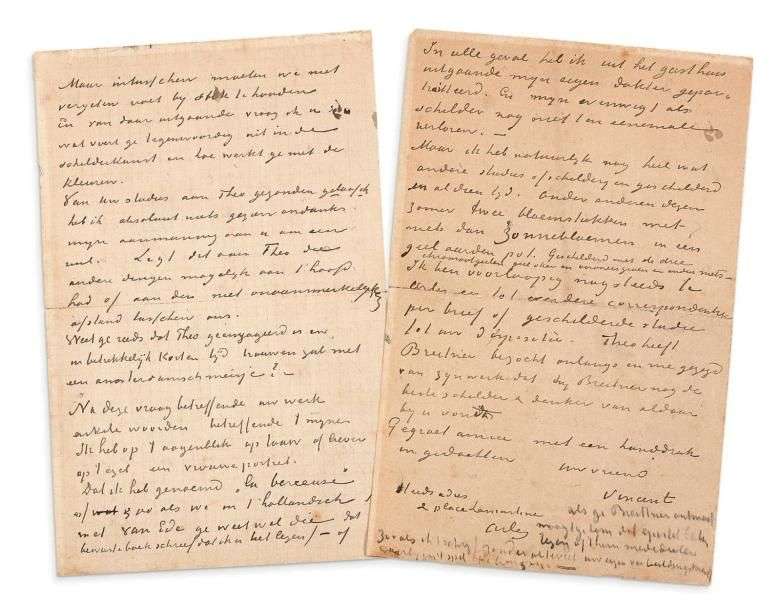 Maar intusschen moeten we niet
vergeten voet by stuk te houden
En van daar uitgaande vraag ik u
wat voert ge tegenwoordig uit in de
schilderkunst en hoe werkt ge met de
kleuren.
Van uw studies aan Theo gezonden
heb ik absoluut niets gezien ondanks
myn aanmaning aan u om een
ruil. Ligt dit aan Theo die
andere dingen mogelyk aan 't hoofd
had of aan den niet onaanmerkelyke
afstand tusschen ons.
Weet ge reeds dat Theo geengageerd is en
in betrekkelyk korten tyd trouwen zal met
een amsterdamsch meisje?
Na deze vraag betreffende uw werk
enkele woorden betreffende 't myne
Ik heb op 't oogenblik op touw of liever
op ezel een vrouweportret.
Dat ik heb genoemd "la berceuse"
of zoo als we in 't hollandsch
met Van Eeden ge weet wel die dat
boek schreef dat ik u liet lezen/ - of
In elle geval heb ik uit het gasthuis
uitgaande myn eigen dokter gepor-
traitteerd. En myn evenwigt als
schilder nog niet ten eenemale
verloren. -
Maar ik heb natuurlyk nog heel wat
andere studies of schilderyen geschilderd
in al dien tyd. Onder anderen dezen
zomer twee bloemstukken met
niets dan Zonnebloemen in een
geel aarden pot. Geschilderd met de drie
chromaatgeelen, geel oker en veronesegroen en anders niets -
Ik ben voorloopig nog steeds te
Arles en tot verdere correspondentie
per brief of geschilderde studie
tot uw dispositie. Theo heeft
Breitner bezocht onlangs en me gezegd
van zyn werk dat hy Breitner nog de
beste schilder & denker van aldaar
by u vond
Gegroet amice met een handdruk
in gedachten uw vriend
Vincent
Steeds adres
2 place Lamartine
Arles
als ge Breitner ontmoet